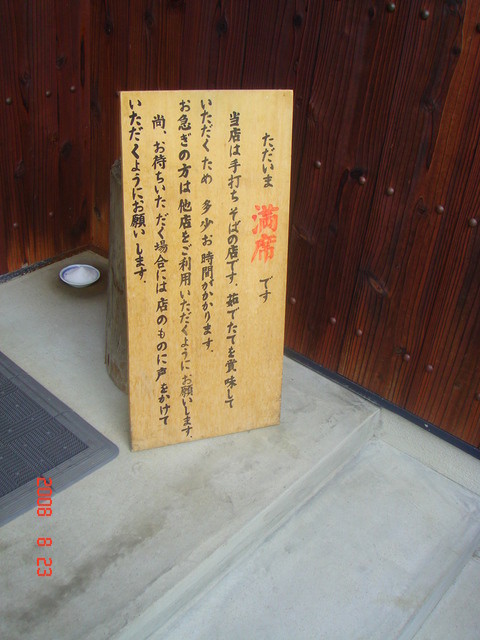 ただいま 満席 です
当店は手打ちそばの店です。茹でたてを賞味して
いただくため 多少お時間がかかります。
お急ぎの方は他店をご利用いただくようにお願いします。
尚、お待ちいただく場合には店のものに声をかけて
いただくようにお願いします。
2008 8 23